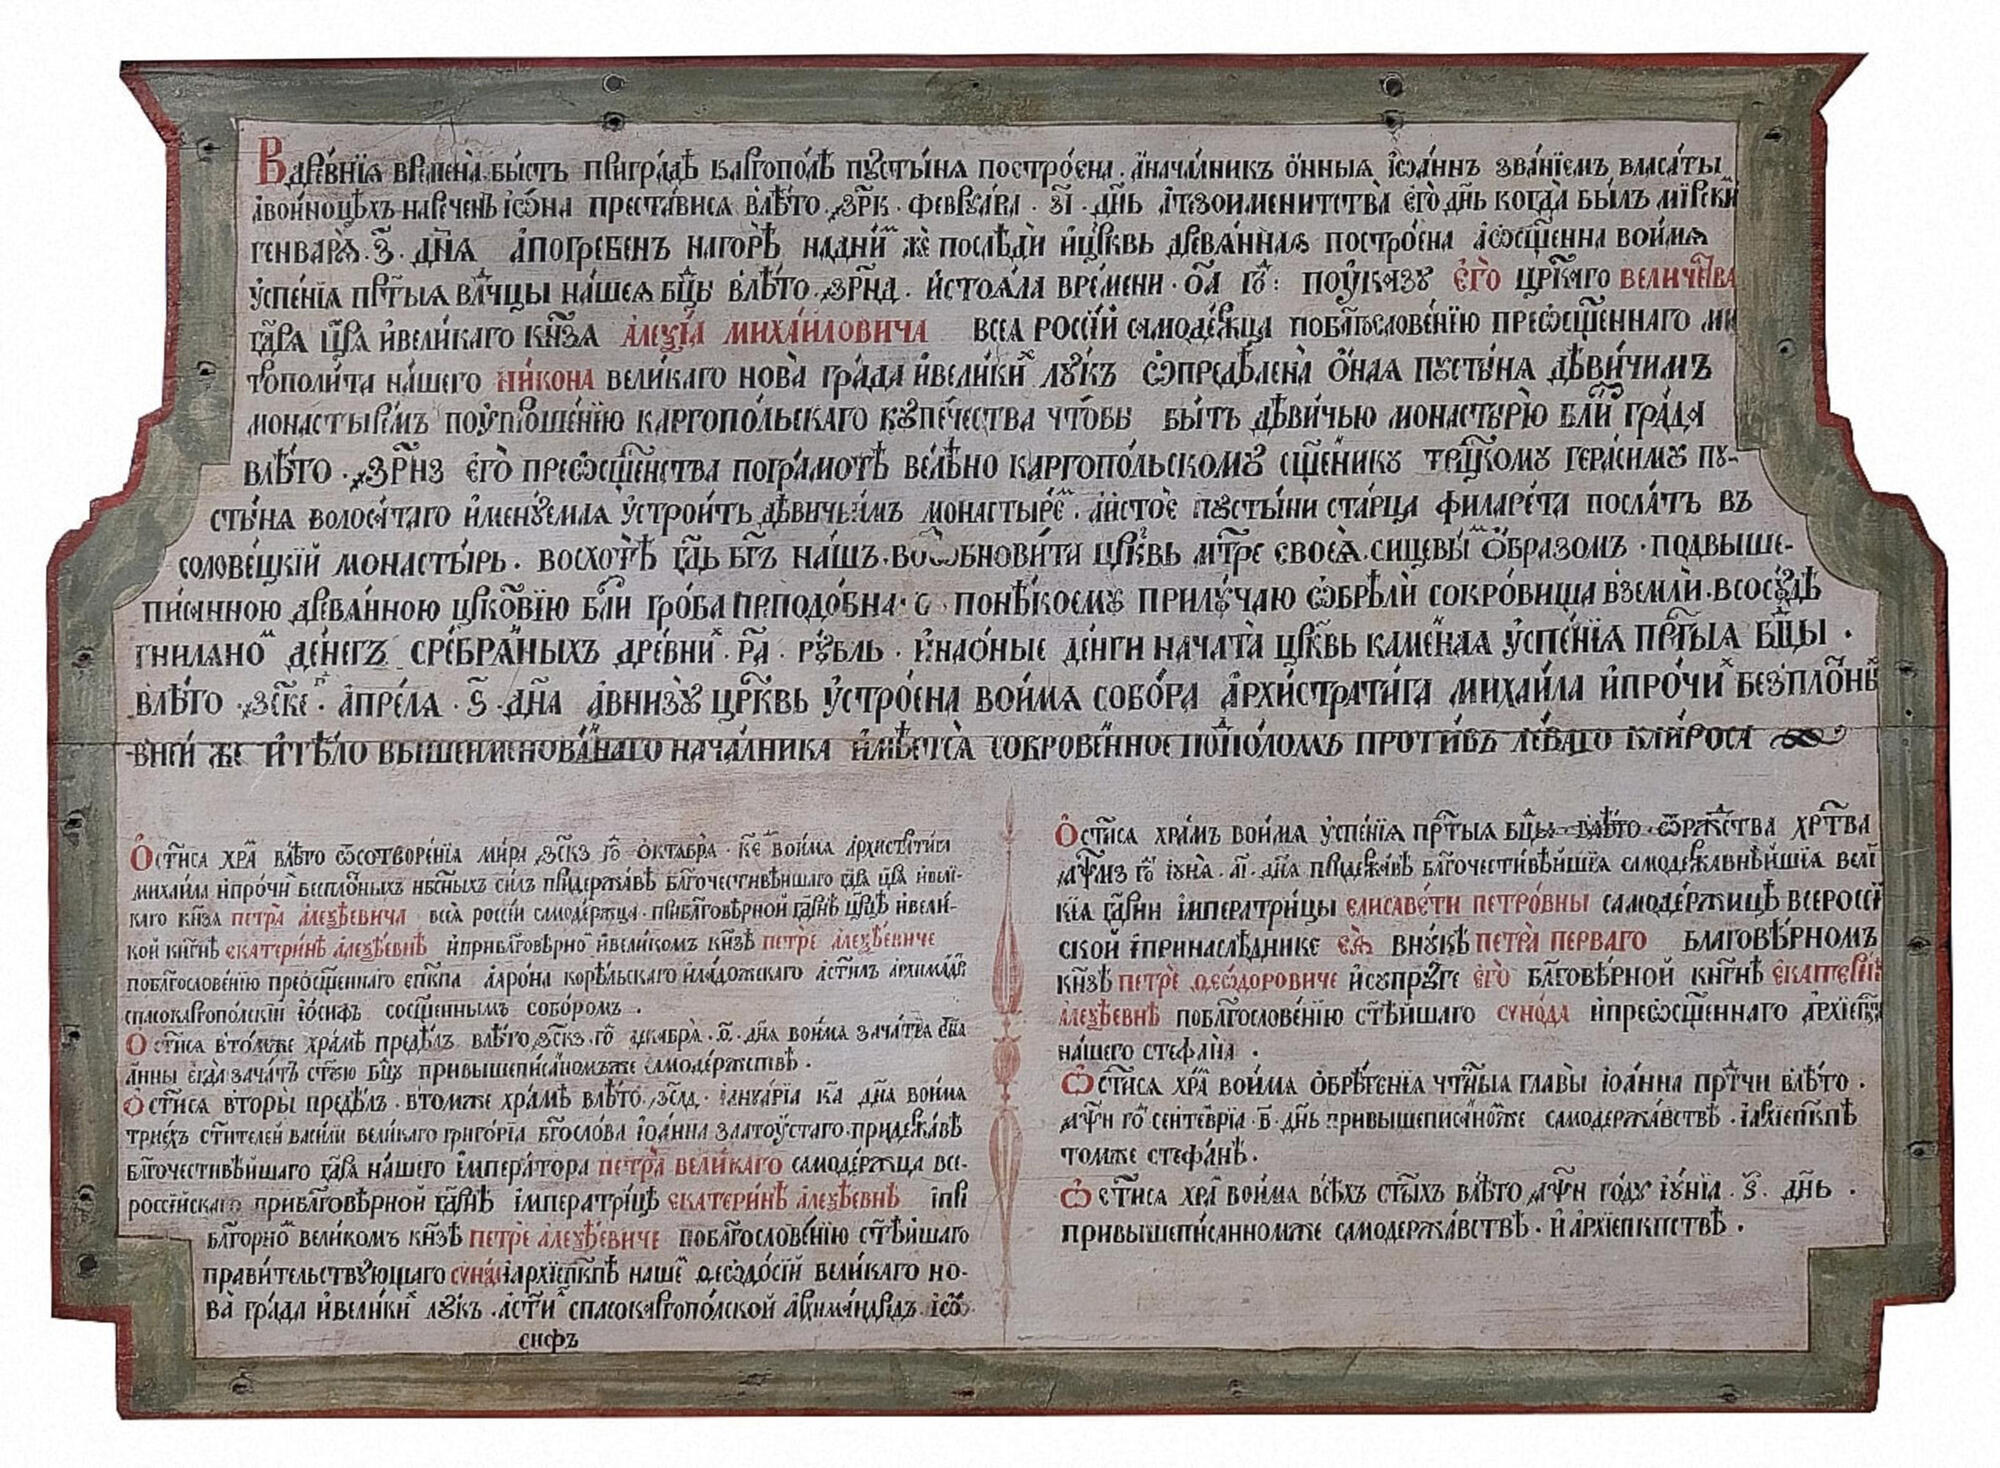 Въ древнїѧ времена бысть при градѣ каргополѣ пꙋстынѧ построена. а началникъ ѻнныѧ їѡаннъ званїемъ власаты
а во иноцѣхъ наречен їѡна преставися в лѣто ҂зрк. февруара. зі. днь а тезоименитства его днь когда былъ мїрски
генваря. з. дня а погребенъ на горѣ над ним же послѣди и црквь древянная построена а ѡсщенна во имя
ꙋспенїя пртыя влчцы нашея бцы в лѣто. ҂зрнд. и стояла времени. оа го: по ꙋказꙋ его црскаго величества
гдря цря и великаго кнзя алеѯїа михаиловича всеа россїи самодержца по блгословенїю преѡсщеннаго ми
трополита нашего никона великаго нова града и великих лꙋкъ ѡпредѣлена ѻная пꙋстыня дѣвичимъ
монастыремъ по ꙋпрошенїю каргополскаго кꙋпечества чтобы быть дѣвичью монастырю близ града
в лѣто. ҂зрнз его преѡсщенства по грамотѣ велѣно каргополскомꙋ сщеникꙋ трцкомꙋ герасимꙋ пꙋ-
стыня волосатаго именꙋемая ꙋстроить дѣвичьимъ монастырем. а ис тое пꙋстыни старца филарета послать въ
соловецкїй монастырь. восхотѣ гдь бгъ нашъ возѡбновити црквь мтре своея. сицевым ѻбразомъ. под выше-
писанною древанною црковїю близ гроба преподобнаго по нѣкоемꙋ прилꙋчаю ѡбрѣли сокровища в земли. в сосꙋдѣ
гниляном денегъ сребраныхъ древних. ра. рꙋбль. и на ѻные денги начата црквь каменая ꙋспенїя пртыя бцы.
в лѣто. ҂зске г. апреля. ѕ. дня а внизꙋ црквь ꙋстроена во имя собора архистратига михаила и прочих безплон
в ней же и тѣло вышеименованаго началника имѣется сокровенное под поломъ против лѣваго клироса
Ѻстися храм в лѣто ѿ сотворенїя мира ҂зскз го октабра. ке во имя архистатига
михаила и прочих бесплоныхъ нбсныхъ силъ при державѣ блгочестивѣишаго гдря цря и вели-
каго кнзя петра алеѯѣевича всея россїи самодержца. при блговѣрной гдрнѣ црцѣ и вели-
кой кнгнѣ екатеринѣ алеѯѣевнѣ и при блговѣрном и великомъ кнзѣ петре алеѯѣевиче
по блгословенїю преѡсщеннаго епкпа аарона корѣльскаго и ладожскаго а стилъ архимадр
спасокаргополскїй іосифъ со сщеннымъ соборомъ.
Ѻстися в томже храмѣ предѣлъ в лѣто ҂зскз. го декабра. ѳ. дня во имя зачатїя стыя
анны егда зачатъ стꙋю бцꙋ при вышеписаномъже самодержствѣ.
Ѻстися вторы предѣлъ. в томже храмѣ в лѣто ҂зслд. іануарїа ка дня во имя
триехъ стителей василїи великаго григорїа бгослова їоанна златоꙋстаго. при державѣ
блгочестивѣйшаго гдря нашего императора петра великаго самодержца все-
россїйскаго при блговѣрной гдрнѣ императрїцѣ екатеринѣ алеѯѣевнѣ и при
блгорном великомъ кнзѣ петре алеѯѣевиче по блгословенїю стѣйшаго
правительствꙋющаго сунода и архїепкпѣ наше ѳеѡдосїй великаго но-
ва града и великих лꙋкъ. а сти спасокаргополской архимандрід. їѡ
сифъ
Ѻстися храмъ во имя ꙋспенїя пртыя бцы в лѣто ѿ ржства хртва
҂аѱмз го іуня. аі. дня при державѣ блгочестивѣйшїя самодержавнѣйшїя вели
кїя гдрни императрїцы елисавети петровны самодержицѣ всероссїй
ской и при наслѣднике ея внꙋкѣ петра перваго благовѣрномъ
кнзѣ петре ѳеѡдоровиче и сꙋпрꙋге его блговѣрной кнгнѣ екатерин
алеѯѣевнѣ по блгословенїю стѣйшаго сунода и преѡсщеннаго архїепкпа
нашего стефана.
Ѡстися храм во имя ѻбрѣтенїя чтныя главы іоанна пртчи в лѣто.
҂аѱн го сентеврїа. в. днь при вышеписаномже самодержавствѣ. и архїепкпѣ
томже стефанѣ.
Ѡстися храм во имя всѣхъ стыхъ в лѣто ҂аѱн годꙋ іунїа. ѕ. днь.
при вышеписанномже самодержавствѣ. и архїепкпствѣ.